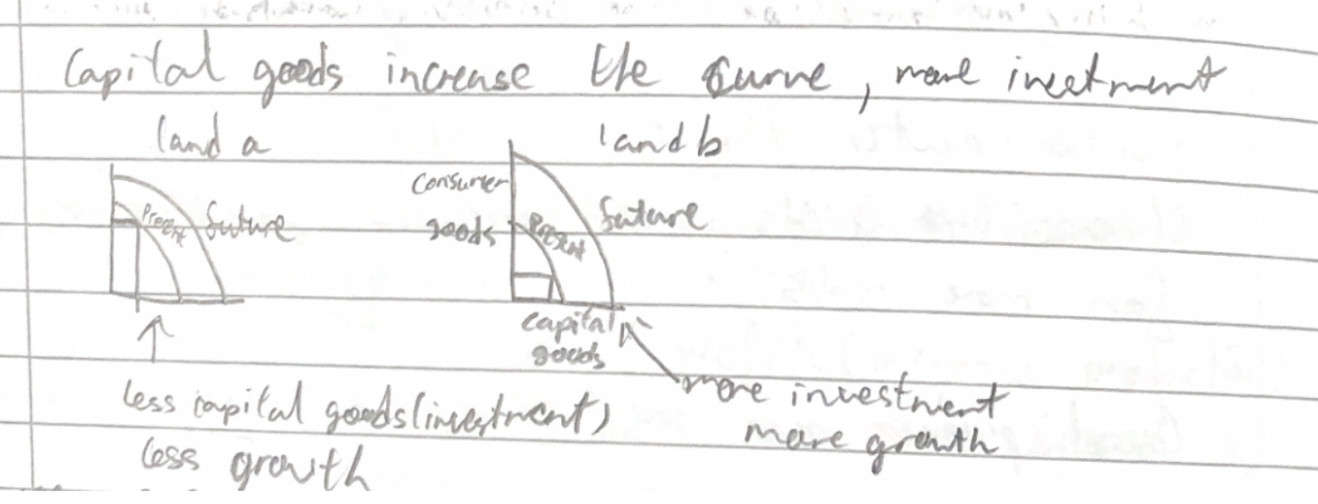 Capital goods increase the curve, more investment
land a
land b
Consumer
goods
Present
future
Present
future
capital
goods
less capital goods (investment)
less growth
more investment
more growth